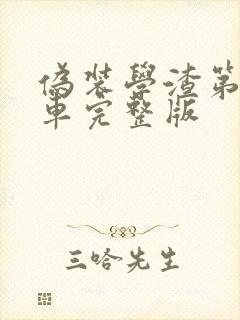 偽裝學渣第
車完整版
三哈先生